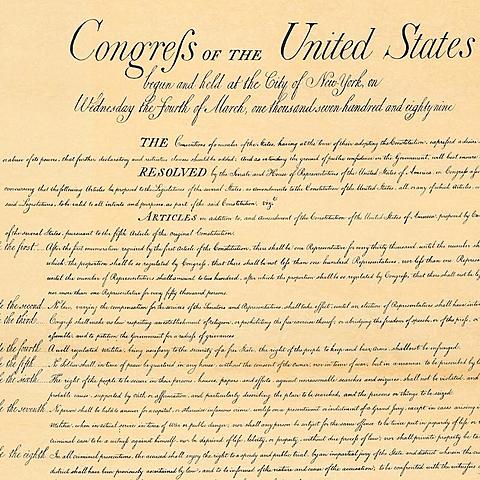 Congreſs OF THE United States
begun and held at the City of New-York, on
Wednesday the fourth of March, one thousand seven hundred and eighty nine
THE Conventions of a number of the States, having at the time of their adopting the Constitution, expressed a desire
or abuse of its powers, that further declaratory and restrictive clauses should be added: And as extending the ground of public confidence in the Government, will best ensure
RESOLVED by the Senate and House of Representatives of the United States of America, in Congress
concurring, that the following Articles be proposed to the Legislatures of the several States, as amendments to the Constitution of the United States, all, or any of which Articles,
said Legislatures, to be valid to all intents and purposes, as part of the said Constitution, viz.t
ARTICLES in addition to, and Amendment of the Constitution of the United States of America, proposed by
of the several States, pursuant to the fifth Article of the original Constitution.
the first... After the first enumeration required by the first Article of the Constitution, there shall be one Representative for every thirty thousand, until the number
which, the proportion shall be so regulated by Congress, that there shall be not less than one hundred Representatives, nor less than one
until the number of Representatives shall amount to two hundred, after which the proportion shall be so regulated by Congress, that there shall not be
nor more than one Representative for every fifty thousand persons.
the second... No law, varying the compensation for the services of the Senators and Representatives, shall take effect, until an election of Representatives shall have
the third... Congress shall make no law respecting an establishment of religion, or prohibiting the free exercise thereof; or abridging the freedom of speech, or of the
assemble, and to petition the Government for a redress of grievances.
the fourth... A well regulated Militia, being necessary to the security of a free State, the right of the people to keep and bear Arms, shall not be infringed.
the fifth... No Soldier shall, in time of peace be quartered in any house, without the consent of the owner, nor in time of war, but in a manner to be prescribed by
the sixth... The right of the people to be secure in their persons, houses, papers, and effects, against unreasonable searches and seizures, shall not be violated, and
probable cause, supported by oath or affirmation, and particularly describing the place to be searched, and the persons or things to be seized.
the seventh... No person shall be held to answer for a capital, or otherwise infamous crime, unless on a presentment or indictment of a Grand Jury, except in cases arising
Militia, when in actual service in time of War or public danger; nor shall any person be subject for the same offence to be twice put in jeopardy of life or
criminal case to be a witness against himself, nor be deprived of life, liberty, or property, without due process of law; nor shall private property be
the eighth... In all criminal prosecutions, the accused shall enjoy the right to a speedy and public trial, by an impartial jury of the State and district wherein the
district shall have been previously ascertained by law, and to be informed of the nature and cause of the accusation; to be confronted with the witnesses